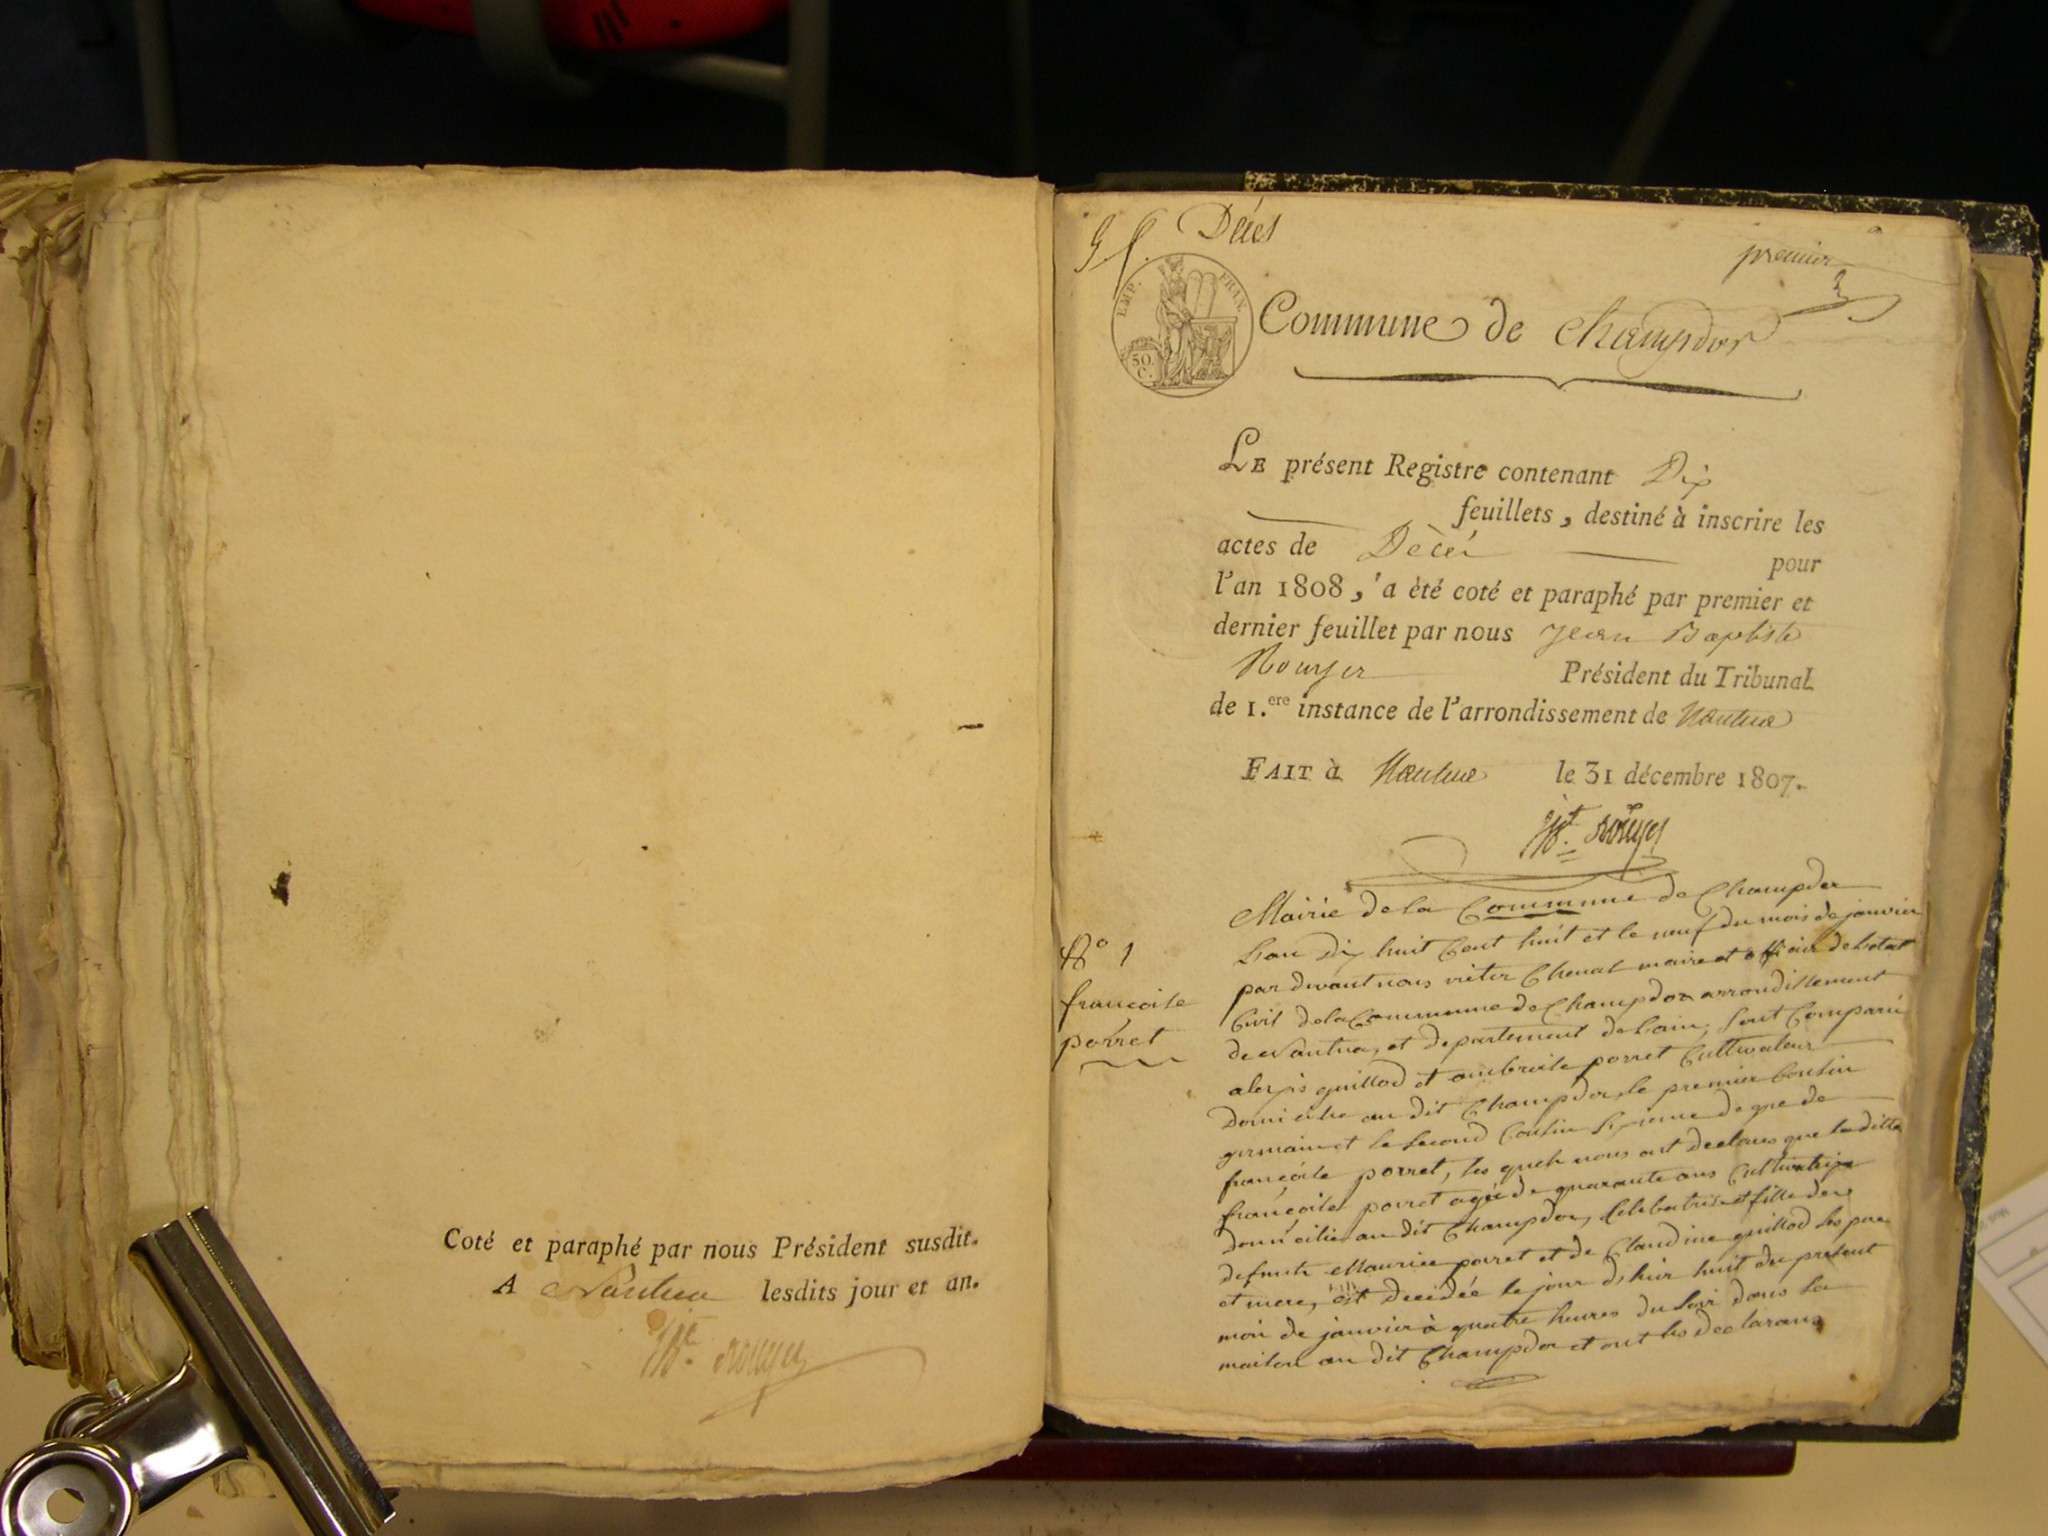 Coté et paraphé par nous Président susdit.
A Nantua lesdits jour et an.
Décès
premier
EMP. FRAN.
50.
C.
Commune de Champdor
LE présent Registre contenant Dix
feuillets, destiné à inscrire les
actes de Décès pour
l'an 1808, a été coté et paraphé par premier et
dernier feuillet par nous Jean Baptiste
Rouyer Président du Tribunal
de 1.ere instance de l'arrondissement de Nantua
FAIT à Nantua le 31 décembre 1807.
Jn Bte. Rouyer
Mairie de la Commune de Champdor
N° 1
francoise
porret
L'an Dix huit Cent huit et le neuf du mois de janvier
par devant nous Chenal maire et officier de l'etat
Civil de la Commune de Champdor arrondissement
de Nantua, et departement de l'ain, sont Comparu
alexis guillod et ambroise porret Cultivateur
Domicilie au dit Champdor, le premier Cousin
germain et le second Cousin degre de
francoise porret, les quels nous ont declare que la ditte
francoise porret agée de quarante ans Cultivatrice
domicilie au dit Champdor, Celebatrise et fille de
defunts Maurice porret et de Claudine guillod ses pere
et mere, est decédée le jour d'hier huit du présent
moi de janvier à quatre heures du soir dans sa
maison au dit Champdor et ont les declarans